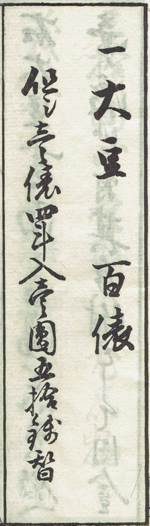 一大豆 百俵
但シ壱俵四斗入壱圓五拾銭替